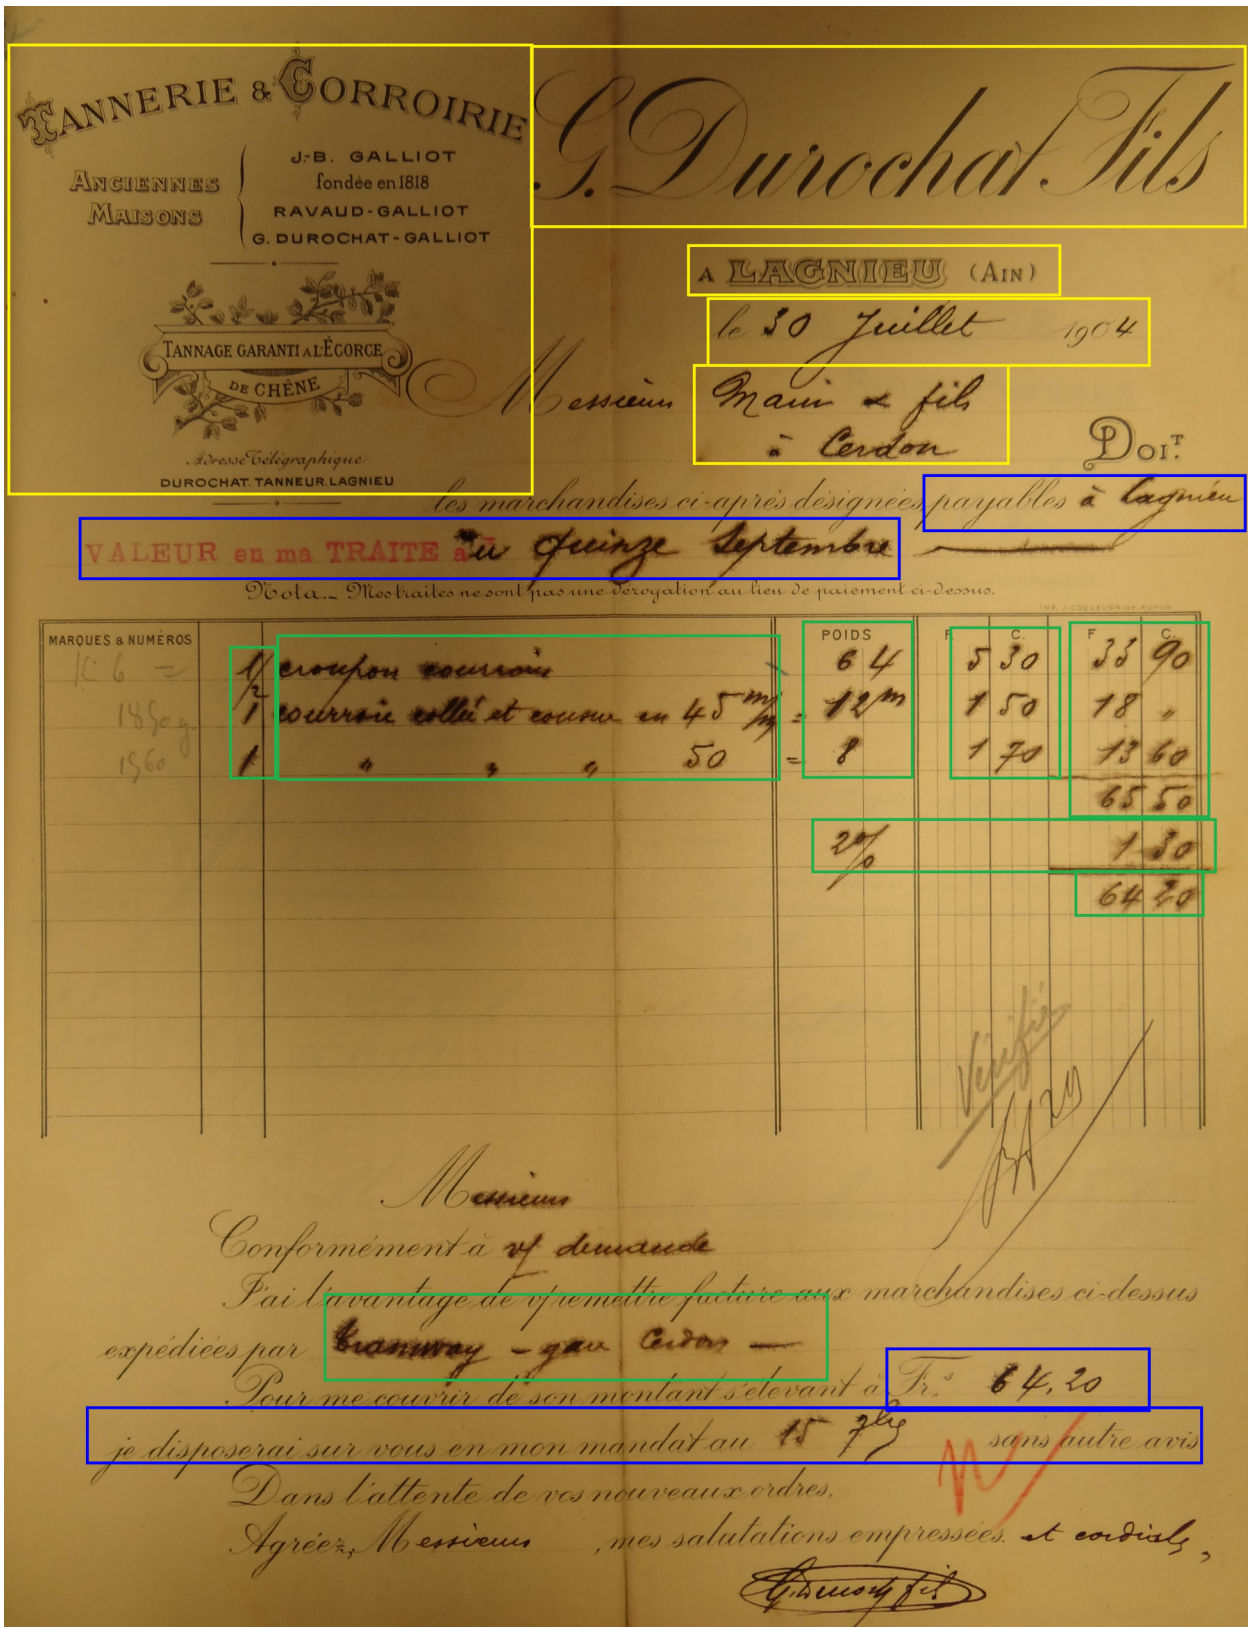 TANNERIE & CORROIRIE
G. Durochat Fils
ANCIENNES MAISONS
J.-B. GALLIOT
fondée en 1818
RAVAUD-GALLIOT
G. DUROCHAT-GALLIOT
A LAGNIEU (AIN)
le 30 Juillet 1904
TANNAGE GARANTI A L'ÉCORCE
DE CHÊNE
Messieurs Main & fils
à Cerdon
DOIT
Adresse Télégraphique
DUROCHAT. TANNEUR. LAGNIEU
les marchandises ci-après désignées payables à Lagnieu
VALEUR en ma TRAITE au quinze Septembre
Nota._ Mes traites ne sont pas une dérogation au lieu de paiement ci-dessus.
MARQUES & NUMÉROS POIDS F. C. F C.
1/2 croupon courroie 6 4 5 30 33 90
1 courroie collée et cousue en 45 m/m = 12 m 1 50 18 "
1960 1 " " " 50 = 8 1 70 13 60
65 50
2% 1 30
64 20
Vérifié
Messieurs
Conformément à v/ demande
J'ai l'avantage de v/ remettre facture aux marchandises ci-dessus
expédiées par tramway - gare Cerdon —
Pour me couvrir de son montant s'élevant à Frs 64,20
je disposerai sur vous en mon mandat au 15 7bre sans autre avis
Dans l'attente de vos nouveaux ordres,
Agréez, Messieurs, mes salutations empressées. et cordiales,
G. Durochat fils